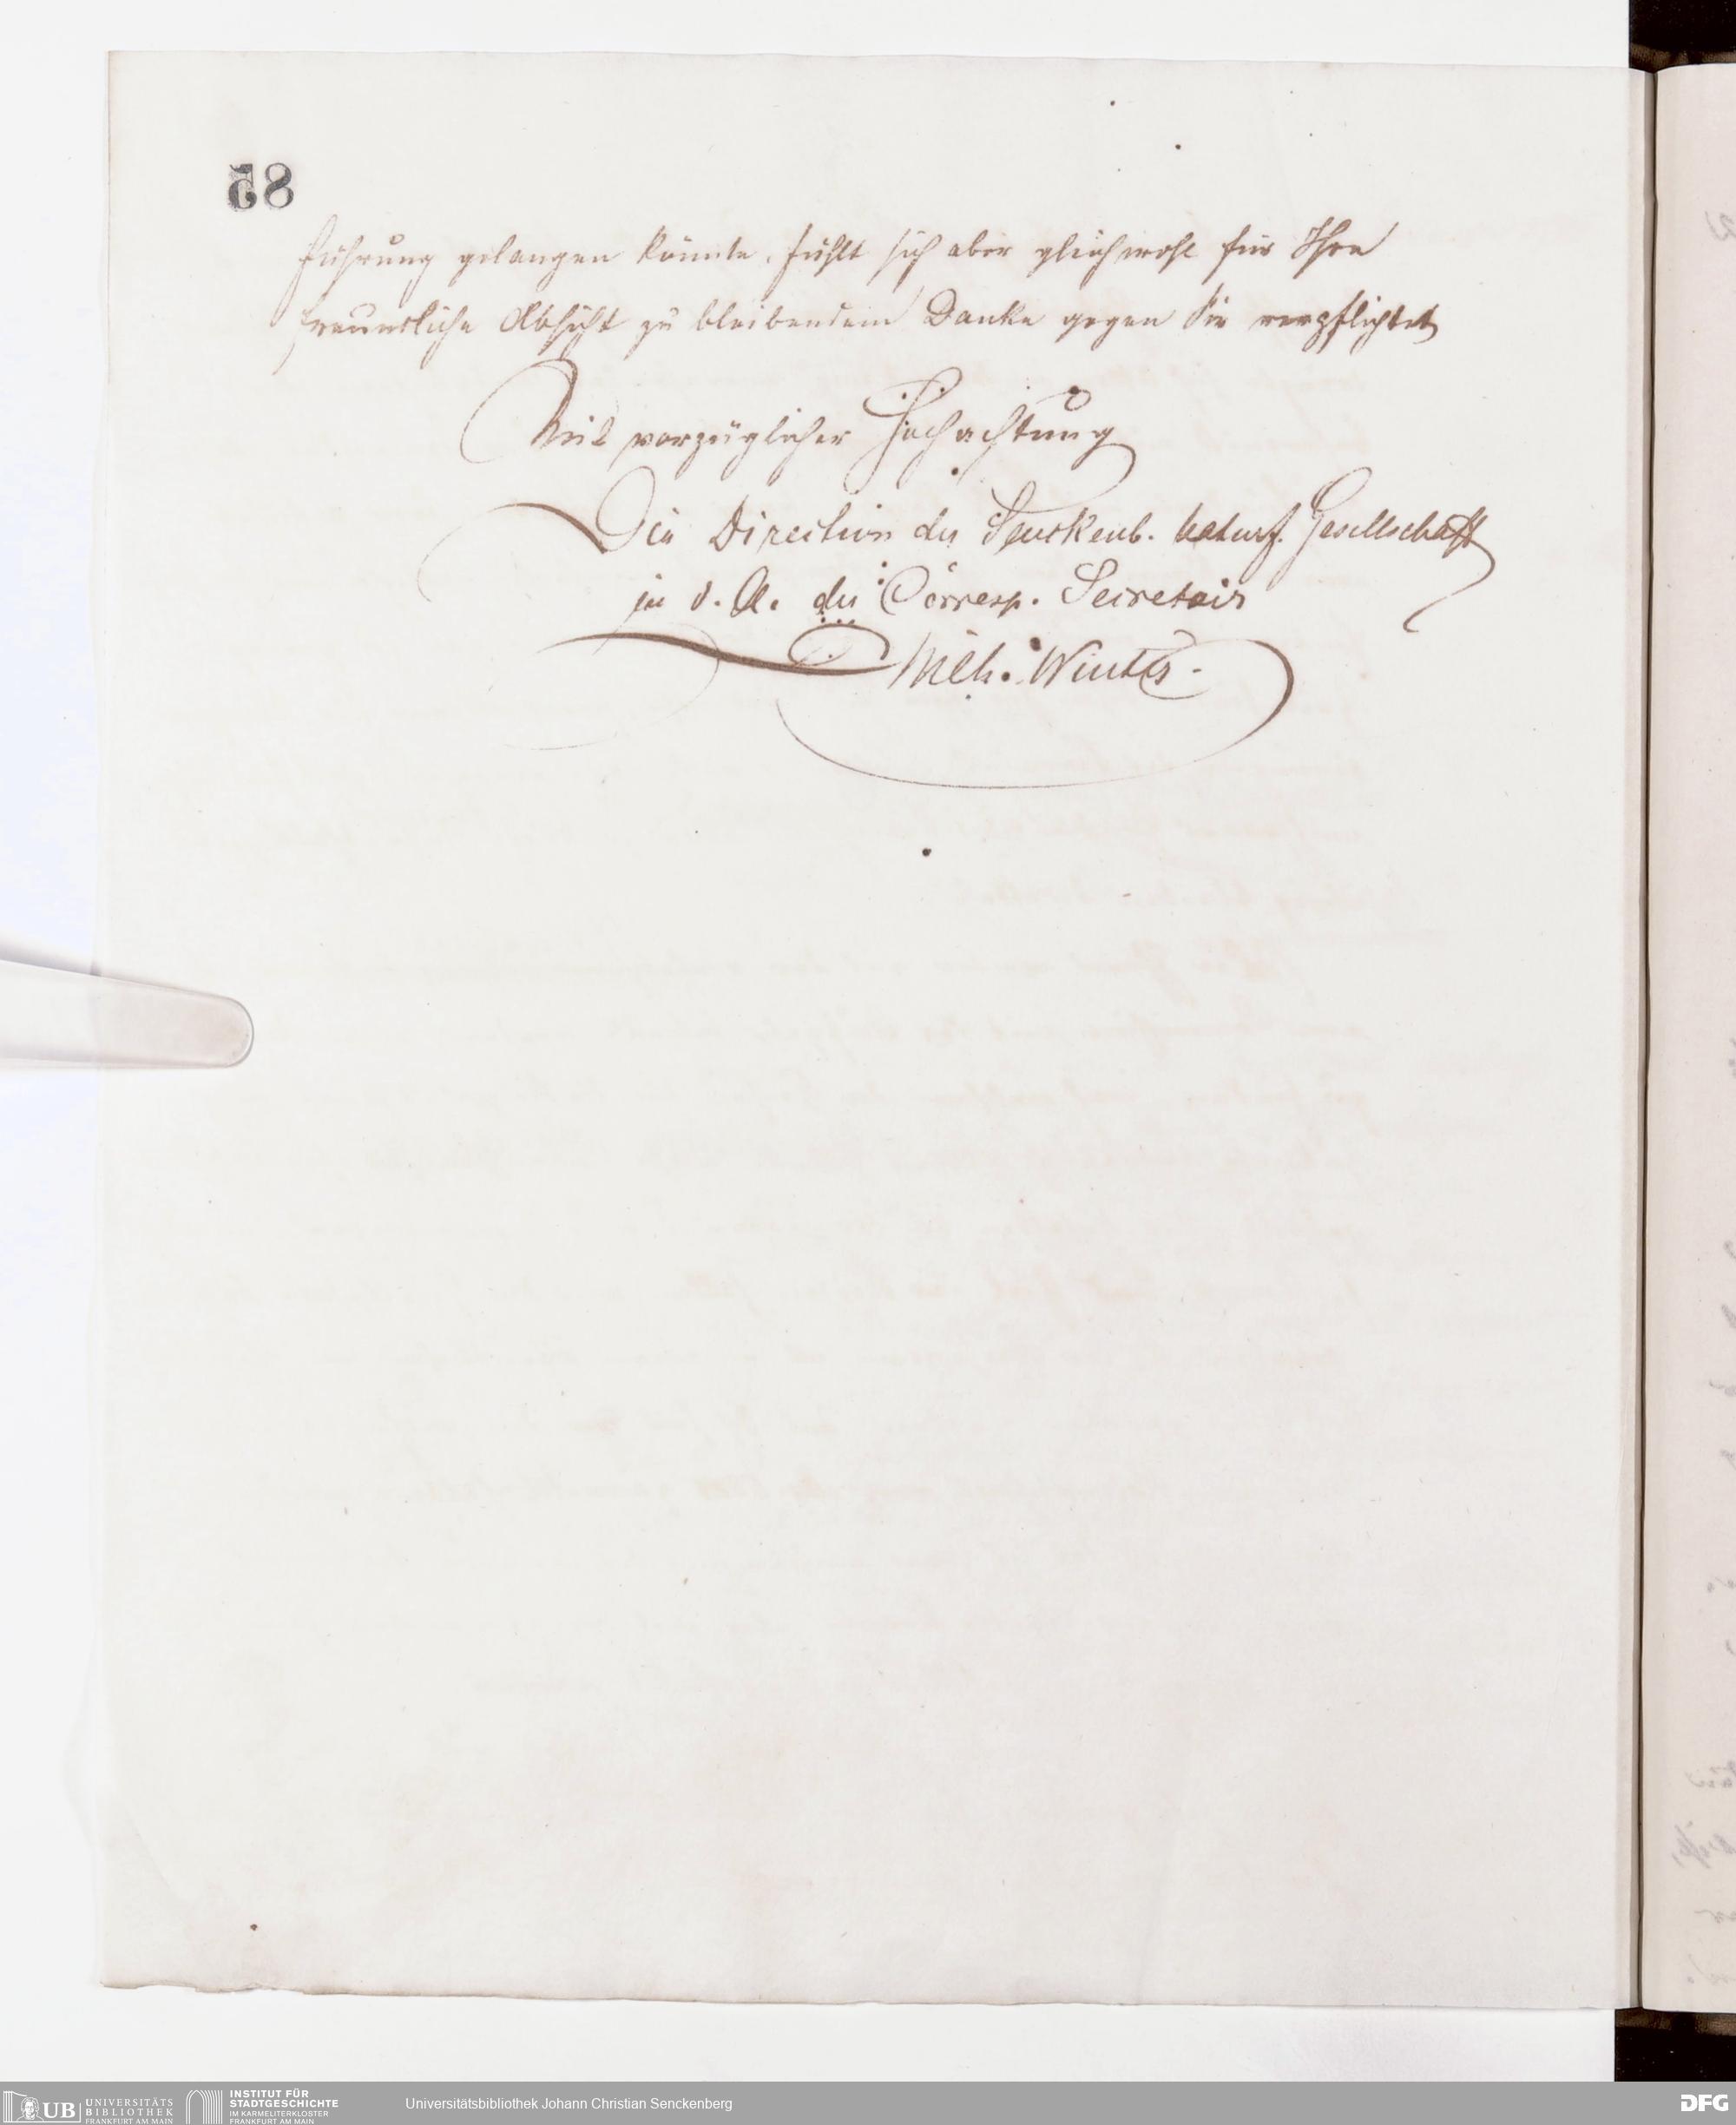 58
führung gelangen könnte, fühlt sich aber gleichwohl für Ihre
freundliche Absicht zu bleibendem Danke gegen Sie verpflichtet
Mit vorzüglicher Hochachtung
Die Direction der Senckenb. naturf. Gesellschaft
in d. A. der Corresp. Secretair
Wilh. Winter.
UB UNIVERSITÄTS
BIBLIOTHEK
FRANKFURT AM MAIN
INSTITUT FÜR
STADTGESCHICHTE
IM KARMELITERKLOSTER
FRANKFURT AM MAIN
Universitätsbibliothek Johann Christian Senckenberg
DFG